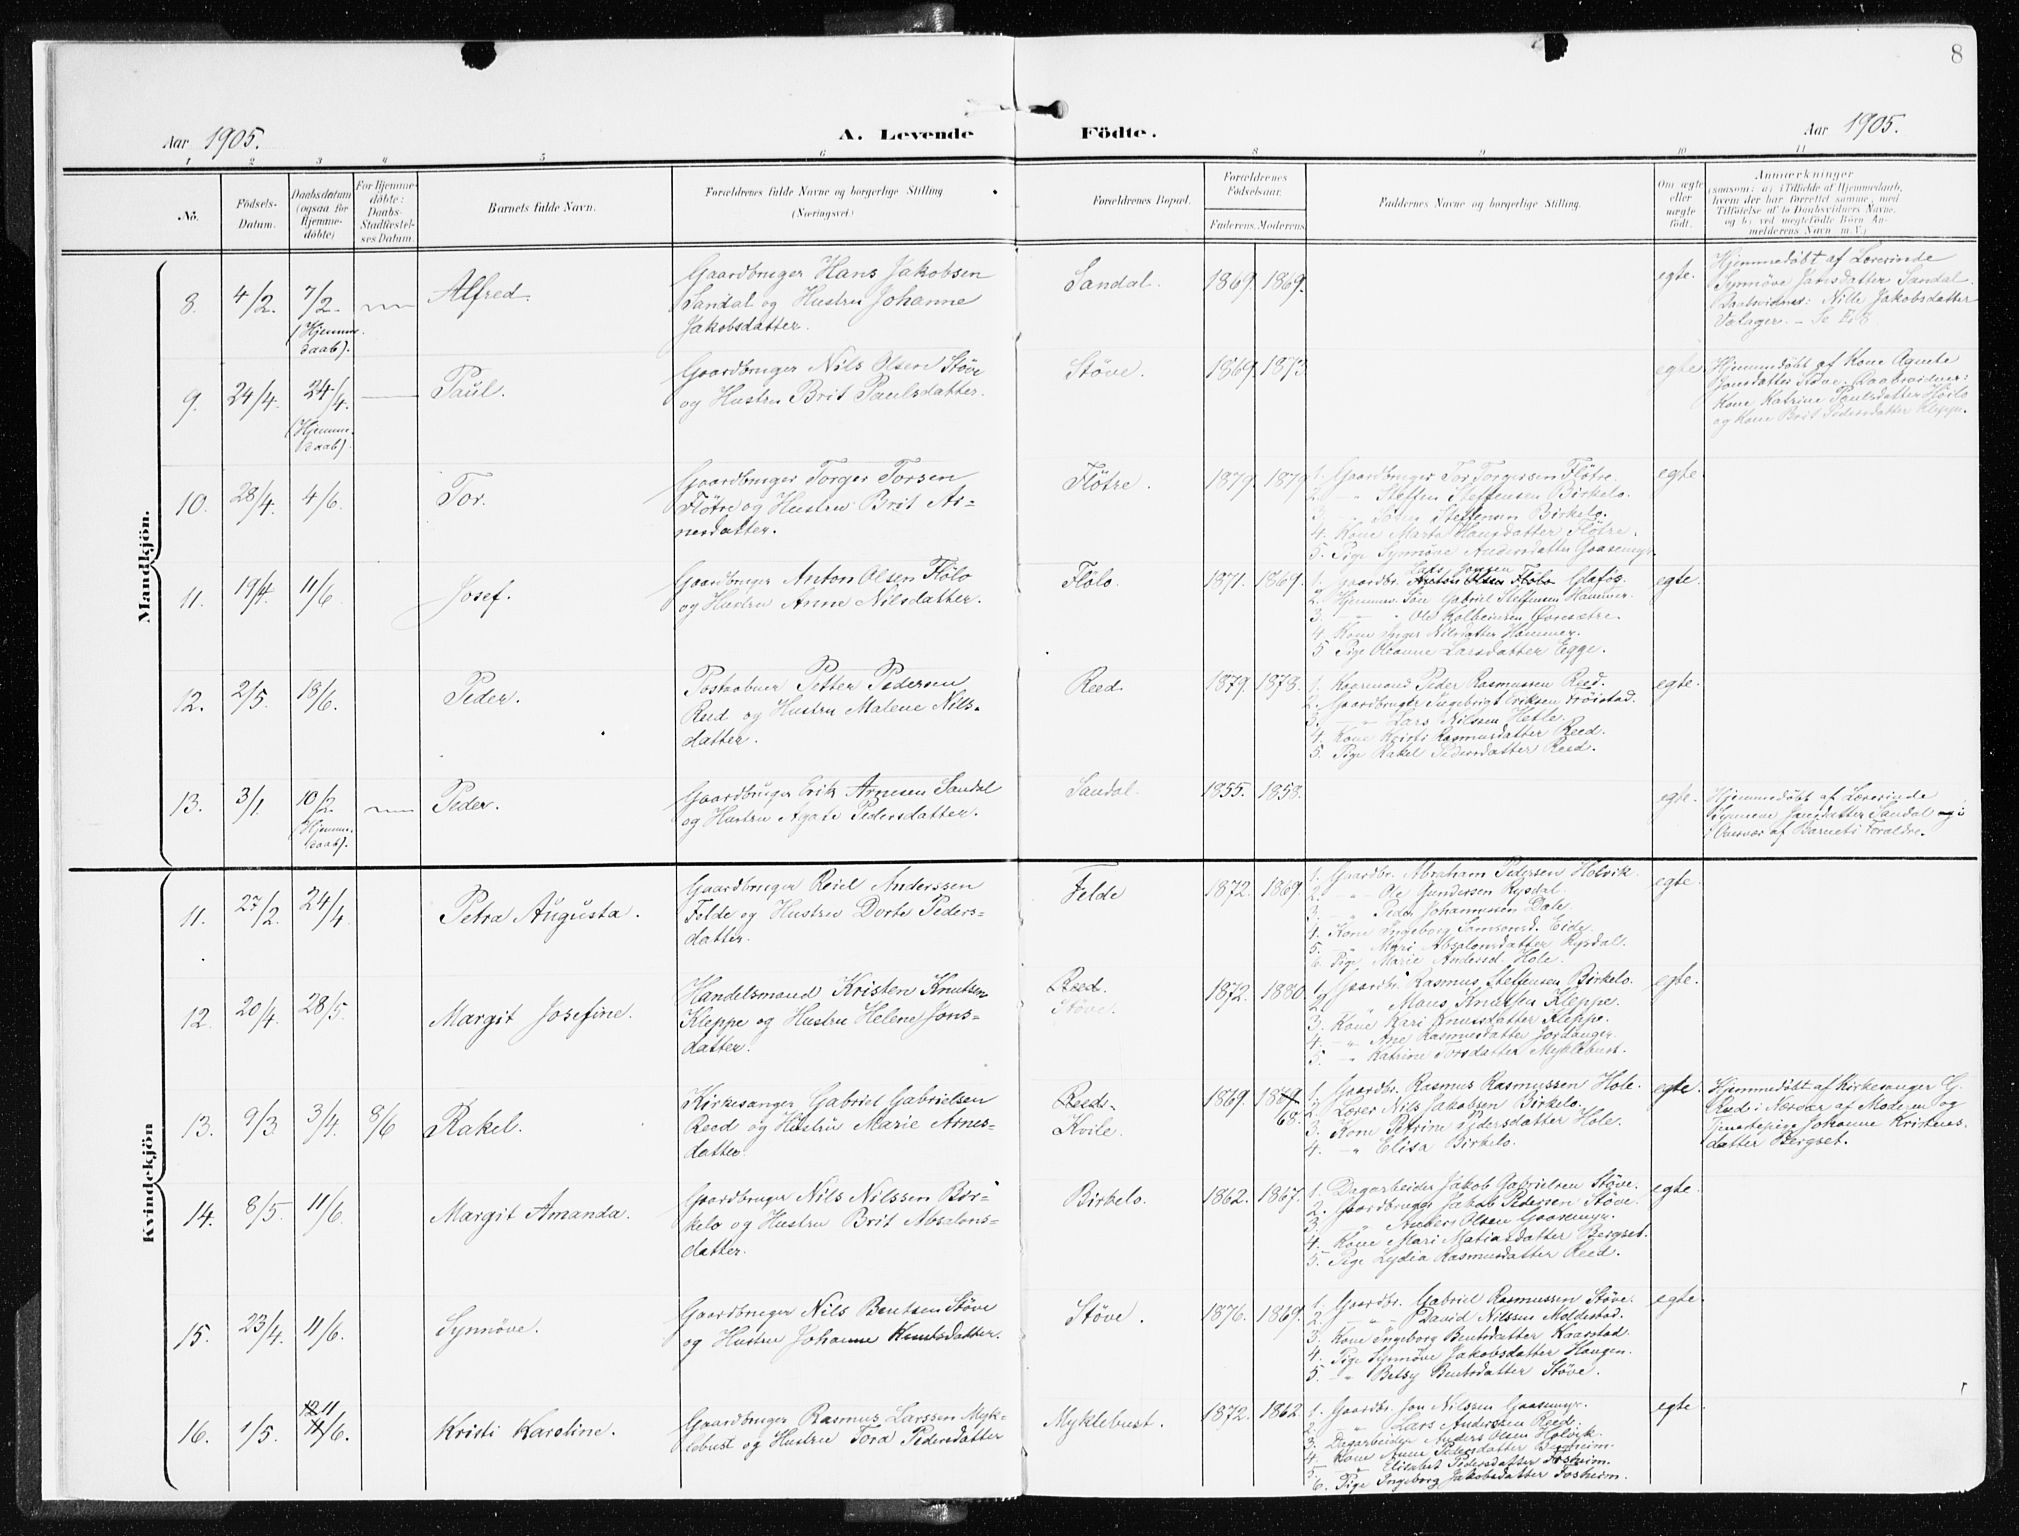 8
Aar 1905.
A. Levende Födte.
Aar 1905.
1 2 3 4 5 6 8 9 10 11
No.
Födsels-Datum.
Daabsdatum (ogsaa for Hjemme-döbte)
For Hjemme-döbte: Daabs-Stadfæstel-ses Datum.
Barnets fulde Navn.
Forældrenes fulde Navne og borgerlige Stilling (Næringsvei.)
Forældrenes Bopæl.
Forældrenes Födselsaar.
Faderens. Moderens.
Faddernes Navne og borgerlige Stilling.
Om ægte eller uægte födt.
Anmærkninger
(saasom: a) i Tilfælde af Hjemmedaab, hvem der har forrettet samme, med Tilföielse af to Daabsvidners Navne. og b) ved uegtefödte Börn An-melderens Navn m. V.)
Mandkjön.
8. 4/2. 7/2. (Hjemme-daab). Alfred.
Gaardbruger Hans Jakobsen
Sandal og Hustru Johanne
Jakobsdatter.
Sandal. 1869. 1869. egte.
Hjemmedøbt af Lærerinde
Synnöve Jansdatter Sandal.
Daabsvidner: Nille Jakobsdatter
9. 24/4. 24/4. (Hjemme-daab). Paul.
Gaardbruger Nils Olsen Støve
og Hustru Brit Paulsdatter.
Støve. 1869. 1873 egte
Hjemmedøbt af Kone Agnete
Jonsdatter Støve. Daabsvidner:
Kone Katrine Paulsdatter
og Kone Brit Pedersdatter Klepp.
10. 28/4. 4/6. Tor.
Gaardbruger Torger Torsen
Fløtre og Hustru Brit Ar-
nesdatter.
Fløtre. 1879. 1879 egte.
1. Gaardbruger Tor Torgersen Fløtre.
2. -"- Steffen Steffensen Birkelo.
3. Steffensen Birkelo.
4. Kone Marta Hansdatter Fløtre.
5. Pige Synnøve Andersdatter Gaasemyr.
11. 19/4. 11/6. Josef.
Gaardbruger Anton Olsen Flølo
og Hustru Anne Nilsdatter.
Flølo. 1871. 1869. egte.
1. Gaardbr. Anton Olsen Flølo
2. Hjemmev. Søn Gabriel Steffensen Hammer.
3. Ole Kolbeinsen Øvresætre.
4. Kone Inger Nilsdatter Hammer.
5 Pige Oleanne Larsdatter Egge.
12. 2/5. 18/6. Peder.
Postaabner Petter Pedersen
Reed og Hustru Malene Nils-
datter.
Reed. 1879. 1873. egte.
1. Kaarmand Peder Rasmussen Reed.
2. Gaardbruger Ingebrigt Eriksen Trøistad.
3. -"- Lars Nilssen Hetle.
4. Kone Kristi Rasmusdatter Reed.
5. Pige Rakel Pedersdatter Reed.
13. 3/1. 10/2. (Hjemme-daab). Peder.
Gaardbruger Erik Arnesen Sandal
og Hustru Agate Pedersdatter.
Sandal. 1855. 1858. egte.
Hjemmedøbt af Lærerinde
Synnöve Jansdatter Sandal
i Nærvær af Barnets Forældre.
Kvindekjön
11. 27/2. 24/4. Petra Augusta.
Gaardbruger Reiel Anderssen
Felde og Hustru Dorte Peders-
datter.
Felde 1872. 1869. egte.
1. Gaardbr. Abraham Pedersen Holvik.
2. -"- Ole Gundersen Rysdal.
3. -"- Peder Johannessen Dale.
4. Kone Ingeborg Samsonsd. Eide.
5. -"- Mari Absalonsdatter Rysdal.
6. Pige Marie Andersd. Hole.
12. 20/4. 28/5. Margit Josefine.
Handelsmand Kristen Knutsen
Kleppe og Hustru Helene Jons-
datter.
Reed.
Støve. 1872. 1880. egte.
1. Gaardbr. Rasmus Steffensen Birkelo.
2. " Mons Knutsen Kleppe.
3. Kone Kari Knutsdatter Kleppe.
4. -"- Ane Rasmusdatter
5. -"- Katrine Torsdatter Myklebust.
13. 9/3. 3/4. 8/6 Rakel.
Kirkesanger Gabriel Gabrielsen
Reed og Hustru Marie Arnes-
datter.
Reeds-
Kvile. 1869. 1869 68. egte.
1. Gaardbr. Rasmus Rasmussen Hole.
2. Lærer Nils Jakobsen Birkelo.
3. Kone Petrine Pedersdatter Hole.
4. -"- Elisa Birkelo.
Hjemmedøbt af Kirkesanger G.
Reed i Nærvær af Moderen og
Tjenestepige Johanne Kristens-
datter Bergset.
14. 8/5. 11/6. Margit Amanda.
Gaardbruger Nils Nilssen Bir-
kelo og Hustru Brit Absalons-
datter.
Birkelo. 1862. 1867. egte.
1. Dagarbeider Jakob Gabrielsen Støve.
2. Gaardbruger Jakob Pedersen Støve.
3. " Anders Olsen Gaasemyr.
4. Kone Mari Matiasdatter Bergset.
5. Pige Lydia Rasmusdatter Reed.
15. 23/4. 11/6. Synnøve.
Gaardbruger Nils Bentsen Støve
og Hustru Johanne Knutsdatter.
Støve. 1876. 1869. egte.
1. Gaardbr. Gabriel Rasmussen Støve.
2. -"- David Nilssen Moldestad.
3. Kone Ingeborg Bentsdatter Kaarstad.
4. Pige Synnøve Jakobsdatter Haugen.
5. -"- Betsy Bentsdatter Støve.
16. 1/5. 11/6. Kristi Karoline.
Gaardbruger Rasmus Larssen Myk-
lebust og Hustru Tora Pedersdatter
Myklebust. 1872. 1862. egte.
1. Gaardbr. Jon Nilssen Gaasemyr.
2. " Lars Anderssen Reed.
3. Dagarbeider Anders Olsen Holvik.
4. Kone Anne Pedersdatter Bergheim.
5. " Elisabet Pedersdatter Fosheim.
6. Pige Ingeborg Jakobsdatter Fosheim.